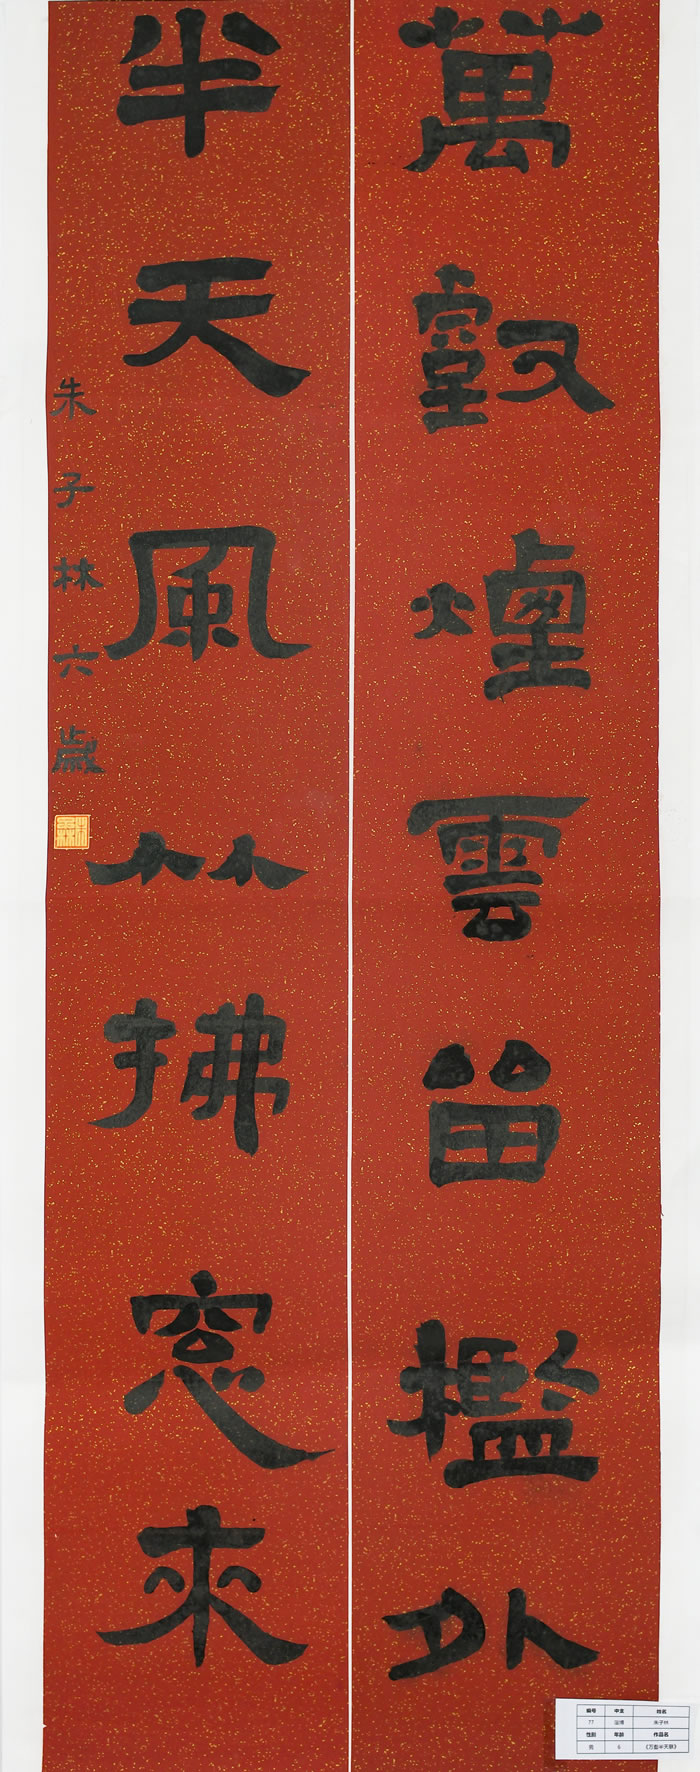 萬壑煙雲留檻外
半天風竹拂窓來
朱子林六歲
编号 申支 姓名
77 淄博 朱子林
性别 年龄 作品名
男 6 《万壑半天联》